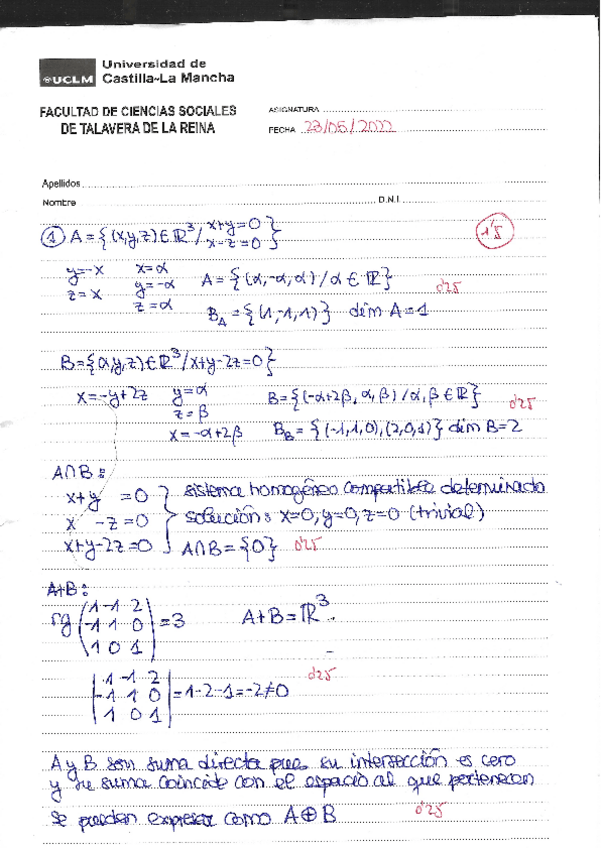 Universidad de
UCLM Castilla-La Mancha
FACULTAD DE CIENCIAS SOCIALES
DE TALAVERA DE LA REINA
ASIGNATURA
FECHA 23/05/2022
Apellidos
Nombre D.N.I.
① A = {(x,y,z) ∈ ℝ³ / x+y=0
x-z=0} 1'5
y=-x x=α A = {(α,-α,α) / α ∈ ℝ} 0'25
z=x y=-α
z=α B_A = {(1,-1,1)} dim A=1
B={(x,y,z) ∈ ℝ³/x+y-2z=0}
x=-y+2z y=α B={(-α+2β, α, β) / α, β ∈ ℝ} 0'25
z=β
x=-α+2β B_B = {(-1,1,0),(2,0,1)} dim B=2
A∩B:
x+y =0 } sistema homogéneo compatible determinado
x -z=0 } solución: x=0, y=0, z=0 (trivial)
x+y-2z=0 } A∩B={0} 0'25
A+B:
rg (1 -1 2
-1 1 0
1 0 1) = 3 A+B=ℝ³.
|1 -1 2
-1 1 0
1 0 1| = 1-2-1=-2≠0 0'25
A y B son suma directa pues su intersección es cero
y su suma coincide con el espacio al que pertenecen
se pueden expresar como A⊕B 0'25